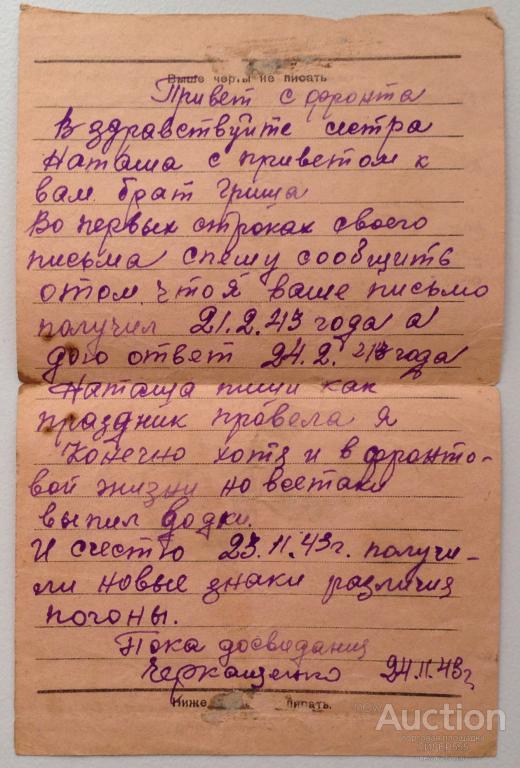 Выше черты не писать
Привет с фронта
Вздравствуйте сестра
Наташа с приветом к
вам брат Гриша
Во первых строках своего
письма спешу сообщить
отом, что я ваше письмо
получил 21.2.43 года а
даю ответ 24.2. года
Наташа пиши как
праздник провела я
Конечно хотя и в фронто-
вой жизни но всетаки
выпил водки.
И счестью 23.II.43г. получи-
ли новые знаки различия
погоны.
Пока досвидания
Черкащенко 24.II.43г
Ниже писать.
Auction
торговая площадка